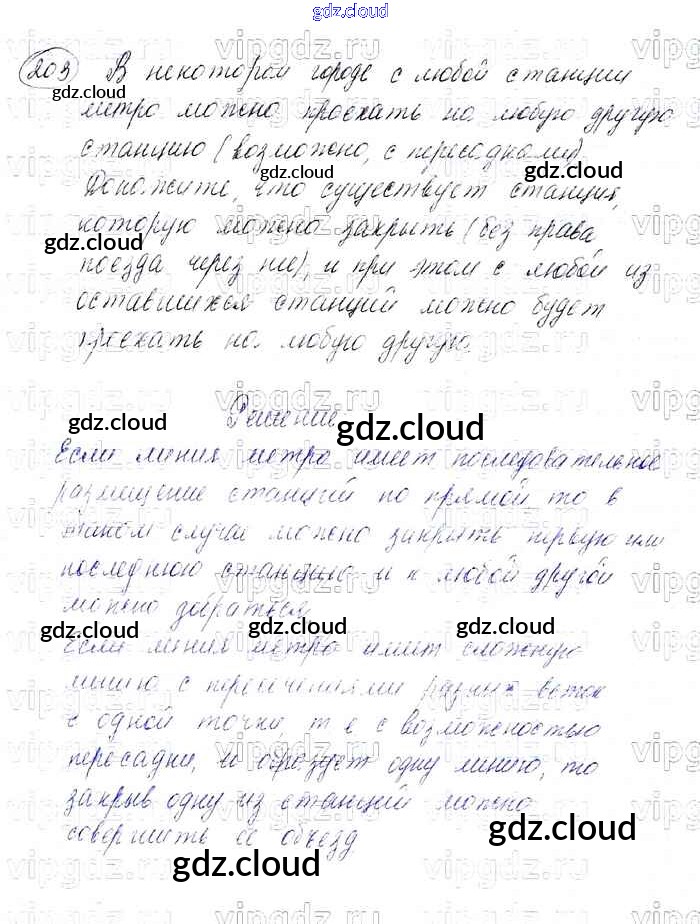 gdz.cloud
203 В некотором городе с любой станции
метро можно проехать на любую другую
станцию (возможно, с пересадками)
Докажите, что существует станция,
которую можно закрыть (без права
поезда через нее), и при этом с любой из
оставшихся станций можно будет
проехать на любую другую
Решение
Если линия метро имеет последовательное
размещение станций по прямой, то в
таком случае можно закрыть первую или
последнюю станцию и к любой другой
можно добраться
Если линия метро имеет сложную
линию с пересечениями разных веток
с одной точки, т е с возможностью
пересадки, образует одну линию, то
закрыв одну из станций можно
совершить ее объезд